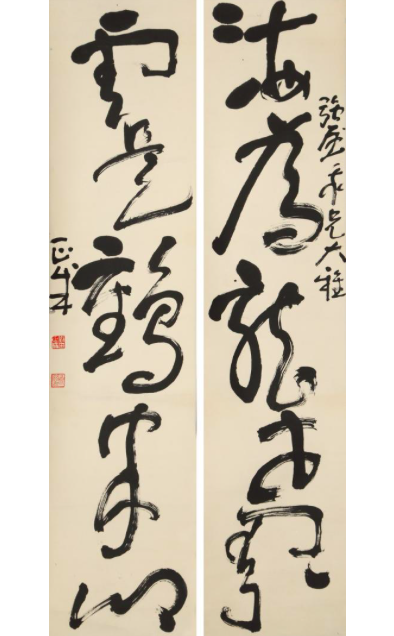 兄大雅
海為龍世界
雲是鶴家鄉
正成